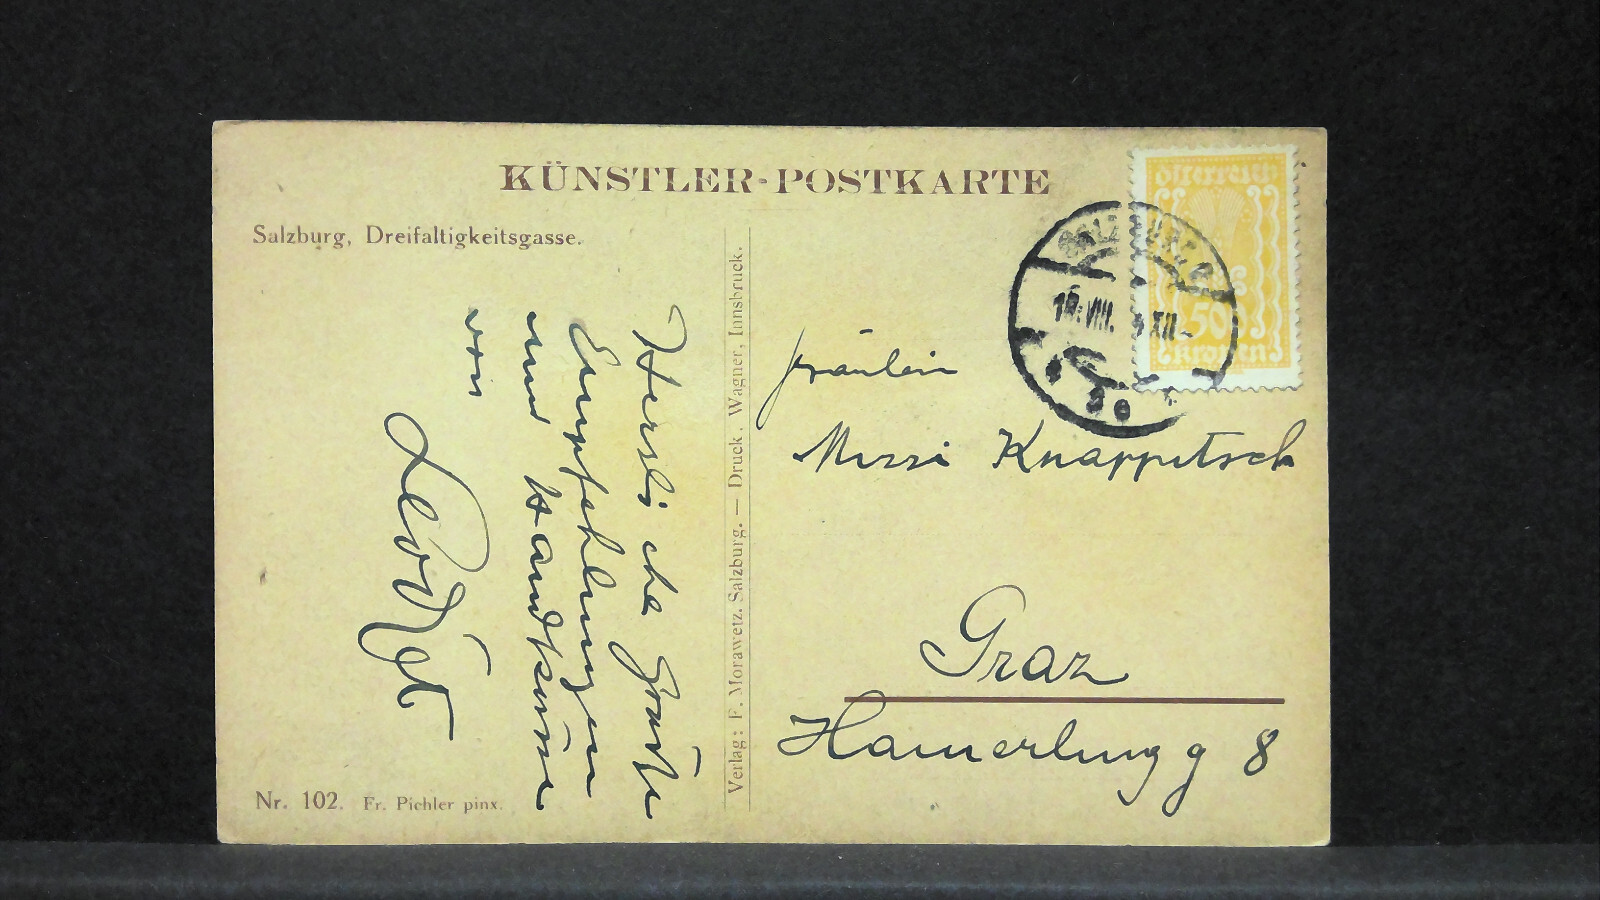 KÜNSTLER-POSTKARTE
Salzburg, Dreifaltigkeitsgasse.
Herzliche Grüße
Empfehlungen
und Handküsse
von
Leo
Nr. 102. Fr. Pichler pinx.
Verlag: F. Morawetz. Salzburg. — Druck. Wagner, Innsbruck.
Österreich
50
Kronen
SALZBURG
VIII. XII
Fräulein
Mizzi Knappitsch
Graz
Hamerlingg 8